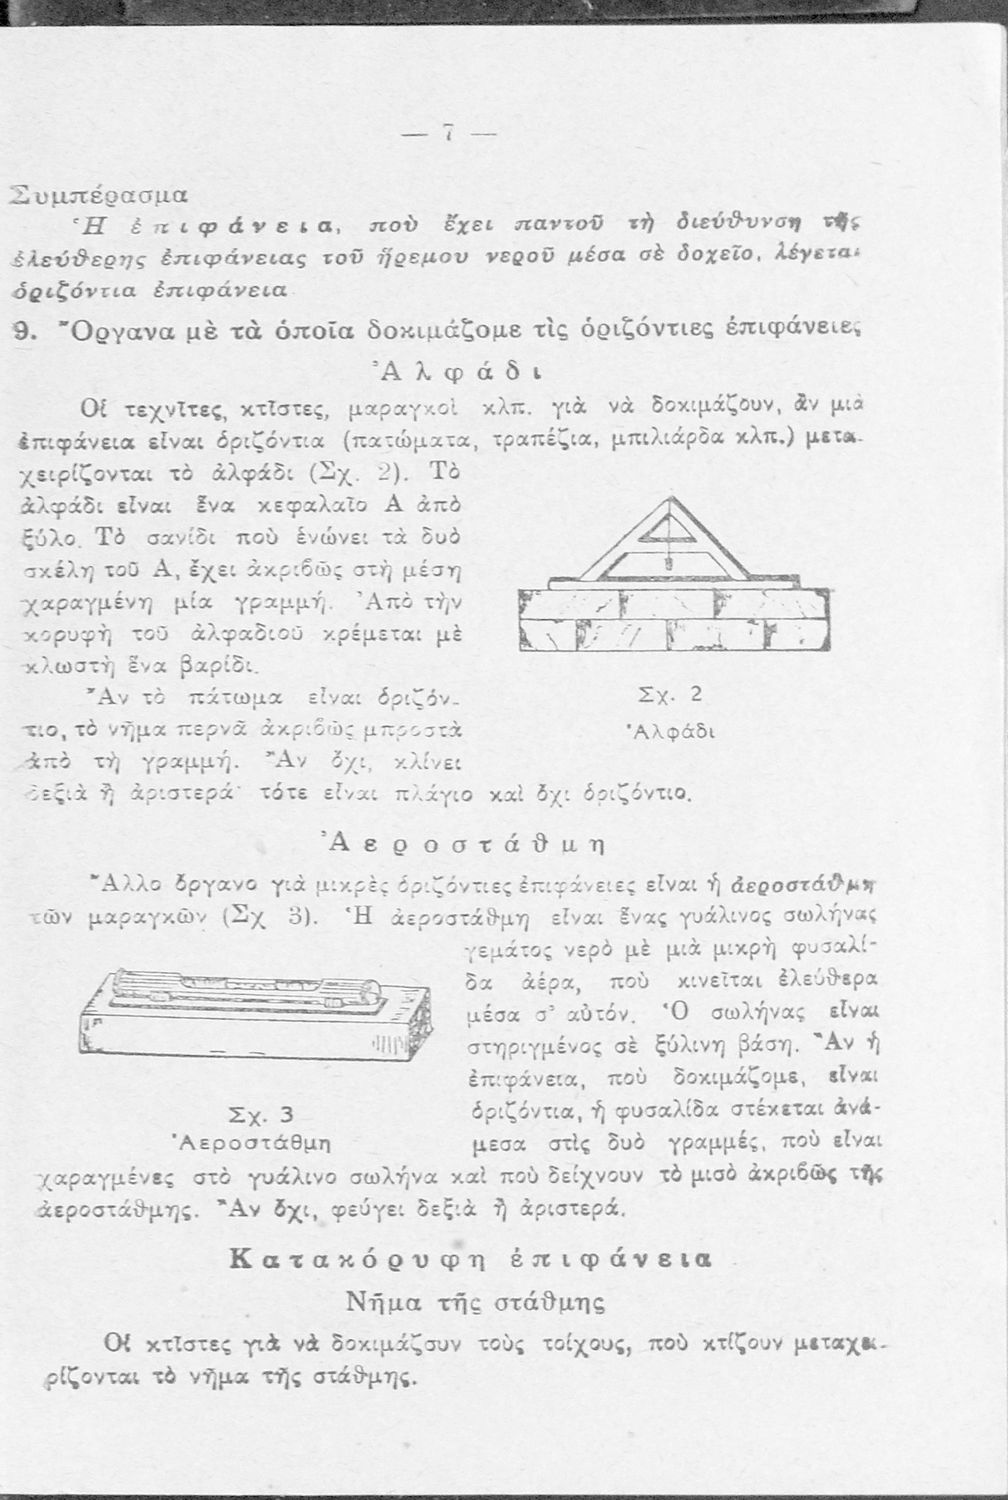 — 7 —
Συμπέρασμα
Ἡ ἐπιφάνεια, ποὺ ἔχει παντοῦ τὴ διεύθυνση τῆς
ἐλεύθερης ἐπιφάνειας τοῦ ἤρεμου νεροῦ μέσα σὲ δοχεῖο, λέγεται
ὁριζόντια ἐπιφάνεια
9. Ὄργανα μὲ τὰ ὁποῖα δοκιμάζομε τὶς ὁριζόντιες ἐπιφάνειες
Ἀλφάδι
Οἱ τεχνῖτες, κτῖστες, μαραγκοὶ κλπ. γιὰ νὰ δοκιμάζουν, ἂν μιὰ
ἐπιφάνεια εἶναι ὁριζόντια (πατώματα, τραπέζια, μπιλιάρδα κλπ.) μετα-
χειρίζονται τὸ ἀλφάδι (Σχ. 2). Τὸ
ἀλφάδι εἶναι ἕνα κεφαλαῖο Α ἀπὸ
ξύλο. Τὸ σανίδι ποὺ ἑνώνει τὰ δυὸ
σκέλη τοῦ Α, ἔχει ἀκριβῶς στὴ μέση
χαραγμένη μία γραμμή. Ἀπὸ τὴν
κορυφὴ τοῦ ἀλφαδιοῦ κρέμεται μὲ
κλωστὴ ἕνα βαρίδι.
Ἂν τὸ πάτωμα εἶναι ὁριζόν-
τιο, τὸ νῆμα περνᾶ ἀκριβῶς μπροστὰ
ἀπὸ τὴ γραμμή. Ἂν ὄχι, κλίνει
δεξιὰ ἢ ἀριστερά· τότε εἶναι πλάγιο καὶ ὄχι ὁριζόντιο.
Σχ. 2
Ἀλφάδι
Ἀεροστάθμη
Ἄλλο ὄργανο γιὰ μικρὲς ὁριζόντιες ἐπιφάνειες εἶναι ἡ ἀεροστάθμη
τῶν μαραγκῶν (Σχ 3). Ἡ ἀεροστάθμη εἶναι ἕνας γυάλινος σωλήνας
γεμάτος νερὸ μὲ μιὰ μικρὴ φυσαλί-
δα ἀέρα, ποὺ κινεῖται ἐλεύθερα
μέσα σ' αὐτόν. Ὁ σωλήνας εἶναι
στηριγμένος σὲ ξύλινη βάση. Ἂν ἡ
ἐπιφάνεια, ποὺ δοκιμάζομε, εἶναι
ὁριζόντια, ἡ φυσαλίδα στέκεται ἀνά-
μεσα στὶς δυὸ γραμμές, ποὺ εἶναι
χαραγμένες στὸ γυάλινο σωλήνα καὶ ποὺ δείχνουν τὸ μισὸ ἀκριβῶς τῆς
ἀεροστάθμης. Ἂν ὄχι, φεύγει δεξιὰ ἢ ἀριστερά.
Σχ. 3
Ἀεροστάθμη
Κατακόρυφη ἐπιφάνεια
Νῆμα τῆς στάθμης
Οἱ κτῖστες γιὰ νὰ δοκιμάζουν τοὺς τοίχους, ποὺ κτίζουν μεταχει-
ρίζονται τὸ νῆμα τῆς στάθμης.